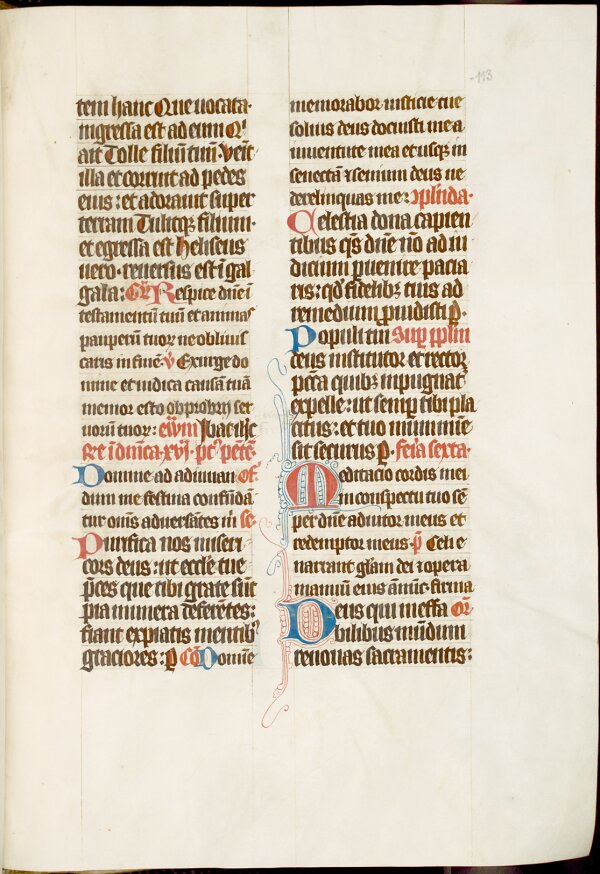 113
tem hanc Que uocata·
ingressa est ad eum Qⁱ
ait Tolle filiū tuū· Veīt
illa et corruit ad pedes
eius: et adorauit super
terram Tulitqꝫ filium·
et egressa est heliseus
uero· reuersus est ī gal
gala: Gr̄ Respice dn̄e ī
testamentū tuū et animas
pauperū tuoꝝ ne obliuis
caris in finē· v̄ Exurge do
mine et iudica causā tuā
memor esto obprobrij ser
uorū tuoꝝ:
re ī dnīca· xvj· pͭ pētē·
Domine ad adiuuan of̄·
dum me festina confūdā
tur om̄s aduersātes m̄ se·
Purifica nos miseri
cors deus: ut eccl̄e tue
p̄ces que tibi grate sūt
pia munera deferētes:
fiant expiatis mentibꝫ
graciores: ꝑ Cō Domīe
memorabor iusticie tue
solius deus docuisti me a
iuuentute mea et usqꝫ in
senectā ⁊ senium deus ne
derelinquas me: 9plnda·
Celestia dona capien
tibus qs̄ dn̄e nō ad iu
dicium ꝑuenire pacia
ris: qd̄ fidelibꝫ tuis ad
remedium ꝓuidisti ꝑ·
Populi tui Suꝑ pplm̄
deus institutor et rectoꝝ
pctā quibꝫ inpugnāt
expelle: ut semꝑ tibi pla
citus: et tuo munimīe
sit securus ꝑ· feria sexta·
Meditacio cordis mei
in conspectu tuo sē
per dn̄e adiutor meus et
redemptor meus· p̄ Celi e
narrant glām dei ⁊ opera
manuū eius ānūc· firma
Deus qui ineffa or̄·
bilibus mūdum
renouas sacramentis: